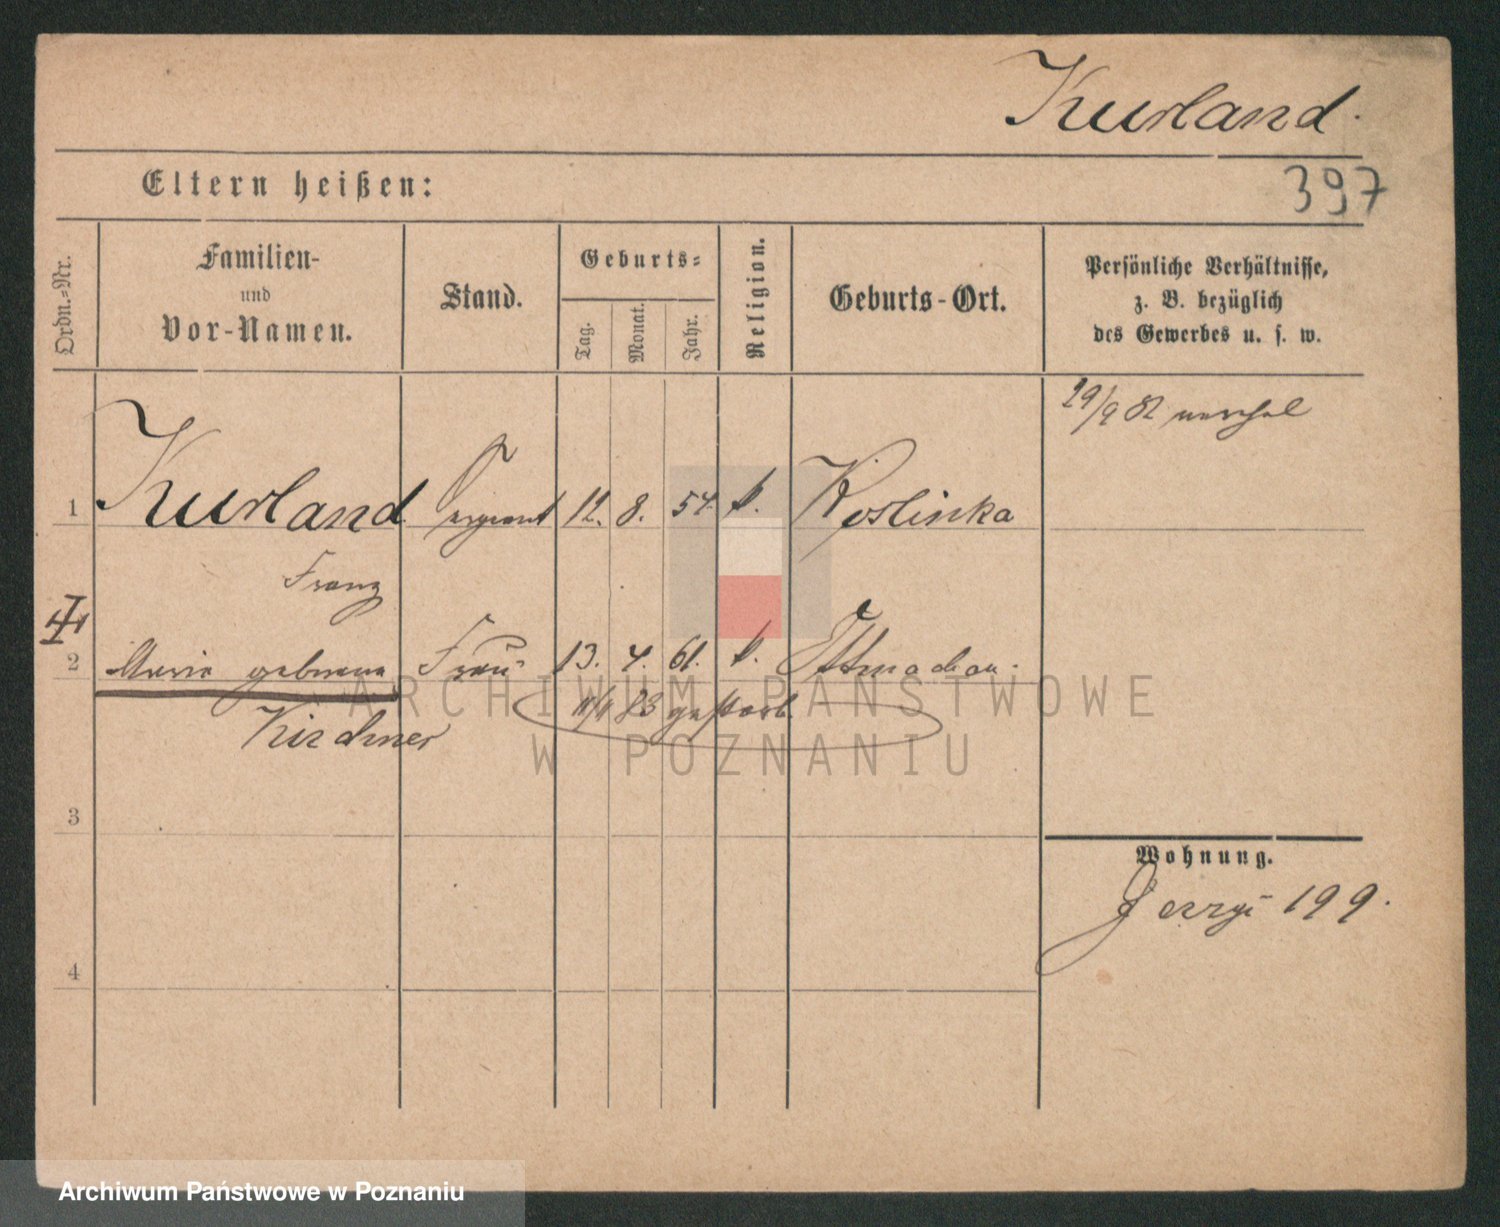 Kurland.
397
Eltern heißen:
Ordn.-Nr.
Familien-
und
Vor-Namen.
Stand.
Geburts-
Tag.
Monat.
Jahr.
Religion.
Geburts-Ort.
Persönliche Verhältnisse,
z. B. bezüglich
des Gewerbes u. s. w.
29/9 82
1 Kurland Sergeant 12. 8. 54. k. Koslinka
Franz
2 Maria geborene Frau 13. 4. 61. k. Ottmachau.
Kirchner
83 gestorb.
3
Wohnung.
Jerzyi 199.
4
ARCHIWUM PAŃSTWOWE
W POZNANIU
Archiwum Państwowe w Poznaniu